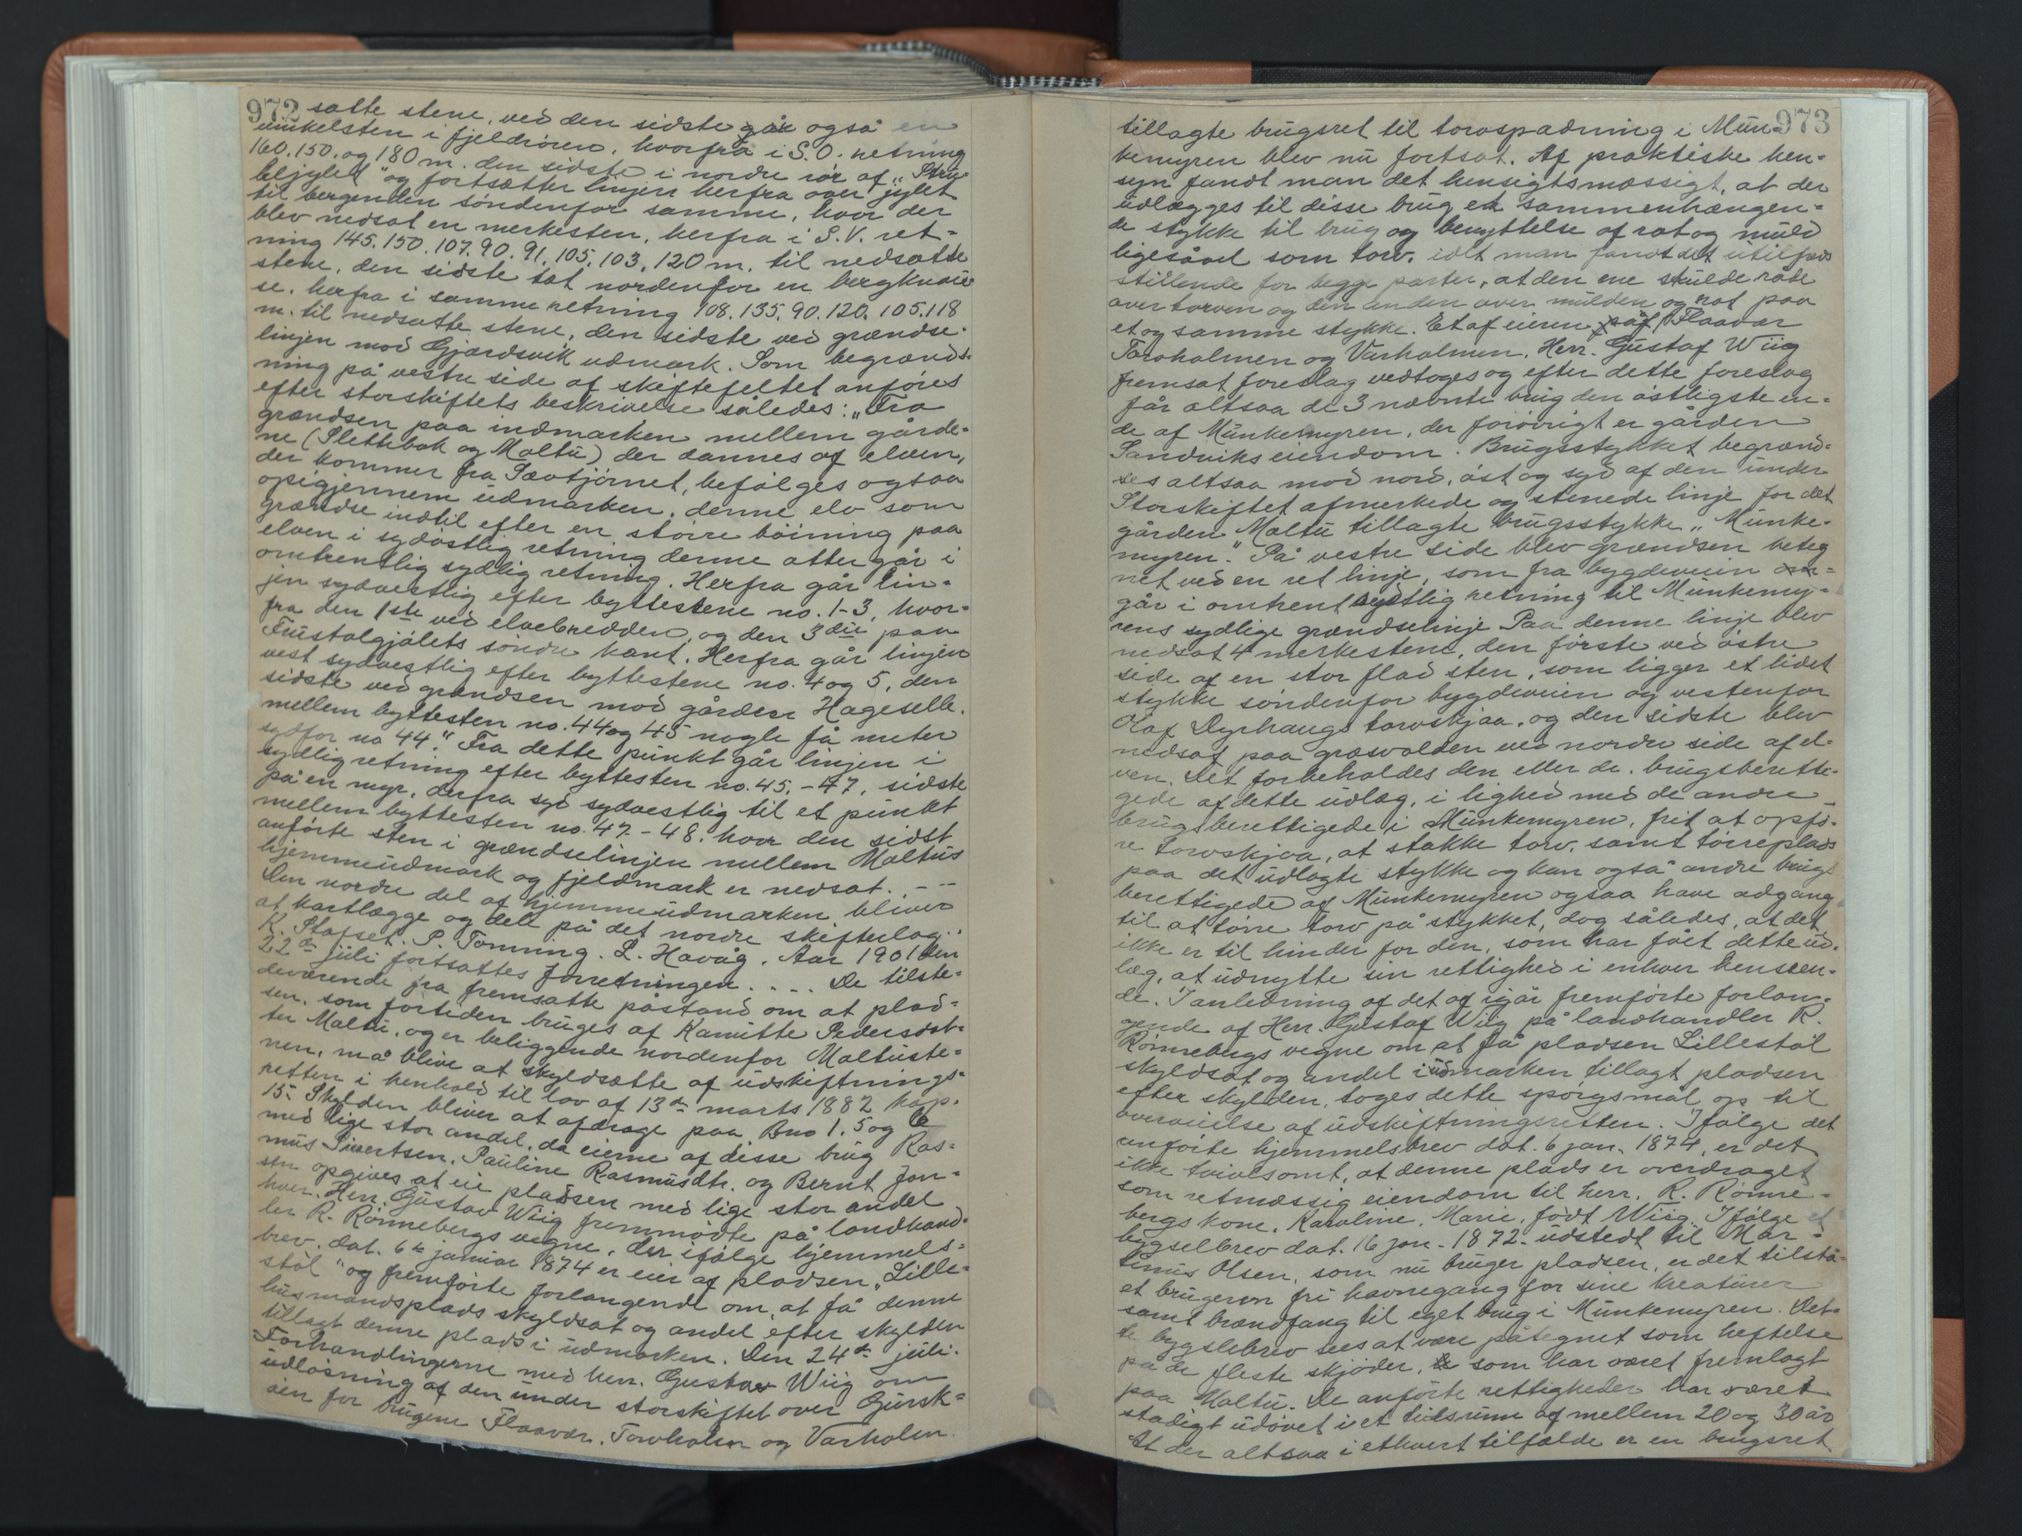 972
satte stene, ved den sidste går også en
vinkelsten i fjeldrören, hvorfra i S.O. retning
160. 150. og 180 m. den sidste i nordre rör af „Stra
bljylet" og fortsætter linjen herfra over jylet
til bergenden söndenfor samme, hvor der
blev nedsat en merkesten, herfra i S.V. ret-
ning 145. 150. 107. 90. 91. 105. 103. 120 m. til nedsatte
stene, den sidste tæt nordenfor en bergknau
se, herfra i samme retning 108. 135. 90. 120. 105. 118
m. til nedsatte stene, den sidste ved grændse-
linjen mod Gjærdsvik udmark. Som begrænds-
ning på vestre side af skiftefeltet anföres
efter storskiftets beskrivelse således: „Fra
grændsen paa indmarken mellem gårde-
ne (Slettebak og Maltu) der dannes af elven,
der kommer fra Sævtjörnet, befölges ogsaa
opigjennem udmarken, denne elv som
grændse indtil efter en större böining paa
elven i sydöstlig retning denne atter går i
omtrentlig sydlig retning. Herfra går lin-
jen sydvestlig efter byttestene no. 1-3, hvor-
fra den 1ste ved elvebredden, og den 3die paa
Frustolgjölets söndre kant. Herfra går linjen
vest sydvestlig efter byttestene no. 4 og 5, den
sidste ved grændsen mod gården Hageselle.
mellem byttesten no. 44 og 45 nogle få meter
sydfor no 44." Fra dette punkt går linjen i
sydlig retning efter byttesten no. 45. - 47, sidste
på en myr, derfra syd sydvestlig til et punkt
mellem byttesten no. 47 - 48. hvor den sidst
anförte sten i grændselinjen mellem Maltus
hjemmeudmark og fjeldmark er nedsat. - -
Den nordre del af hjemmeudmarken bliver
at kartlægge og dele på det nordre skifterlag..
K. Stafset. P. Tomning. L. Havåg. Aar 1901 den
22de juli fortsattes forretningen. . . . De tilste-
deværende fra fremsatte påstand om at plad-
sen, som fortiden bruges af Kamitte Pedersdat-
ter Maltu, og er beliggende nordenfor Maltuste-
nen, må blive at skyldsætte af udskiftnings-
retten i henhold til lov af 13de marts 1882 kap.
15. Skylden bliver at afdrage paa Bno 1. 5 og 6
med lige stor andel, da eierne af disse brug Ras-
mus Sivertsen, Pauline Rasmusdtr. og Bernt Jon-
sen opgives at eie pladsen med lige stor andel
hver. Herr Gustav Wiig fremmödte på landhand-
ler R. Rönnebergs vegne, der ifölge hjemmels-
brev, dat. 6te januar 1874 er eier af pladsen „Lille-
stöl" og fremförte forlangende om at få denne
husmandsplads skyldsat og andel efter skylden
tillagt denne plads i udmarken. Den 24de juli.
Forhandlingerne med herr. Gustav Wiig om
udlösning af den under storskiftet over Gursk-
öen for brugene Flaavær, Torvholm og Varholm.
973
tillagte brugsret til torvspadning i Mun-
kemyren blev nu fortsat. Af praktiske hen-
syn fandt man det hensigtsmæssigt, at der
udlægges til disse brug en sammenhængen-
de stykke til brug og benyttelse af rat og muld
ligesåvel som torv, idet man fandt det utilfreds
stillende for begge parter, at den ene skulde råde
over torven og den anden over mulden og rat paa
et og samme stykke. Et af eieren på Flaavær
Torvholmen og Varholmen, Herr. Gustaf Wiig
fremsat foreslag vedtoges og efter dette foreslag
får altsaa de 3 nævnte brug den östligste en-
de af Munkemyren, der forövrigt er gården
Sandviks eiendom. Brugsstykket begrænd-
ses altsaa mod nord, öst og syd af den under
Storskiftet afmerkede og stenede linje for det
gården Maltu tillagte brugsstykke „Munke-
myren." På vestre side blev grændsen beteg
net ved en ret linje, som fra bygdeveien
går i omtrent sydlig retning til Munkemy-
rens sydlige grændselinje. Paa denne linje blev
nedsat 4 merkestene, den förste ved östre
side af en stor flad sten, som ligger et lidet
stykke söndenfor bygdeveien og vestenfor
Olaf Dyrhaugs torvskjaa, og den sidste blev
nedsat paa græsvolden ved nordre side af el-
ven. Det forbeholdes den eller de brugsberetti-
gede af dette udlæg, i lighed med de andre
brugsberettigede i Munkemyren, frit at opfö-
re torvskjaa, at stakke torv, samt törreplads
paa det udlagte stykke og kan også andre brugs
berettigede af Munkemyren ogsaa have adgang
til at törre torv på stykket, dog således, at det
ikke er til hinder for den, som har fået dette ud.
læg, at udnytte sin rettighed i enhver henseen-
de. I anledning af det af igår fremförte forlan-
gende af Herr. Gustaf Wiig på landhandler R.
Rönnebergs vegne om at få pladsen Lillestöl
skyldsat og andel i udmarken tillagt pladsen
efter skylden, toges dette spörgsmål op til
overveielse af udskiftningsretten. Ifölge det
anförte hjemmelsbrev dat. 6 jan. 1874, er det
ikke tvivlsomt, at denne plads er overdraget
som retmæssig eiendom til herr. R. Rönne-
bergs kone, Karoline, Marie, född Wiig. Ifölge et
bygselbrev dat. 16 jan. 1872. udstedt til Mar-
tinus Olsen, som nu bruger pladsen, er det tilstå-
et brugeren fri havnegang for sine kreaturer
samt brændfang til eget brug i Munkemyren. Det-
te bygslebrev sees at være påtegnet som heftelse
på de fleste skjöder, som har været fremlagt
paa Maltu. De anförte rettigheder har været
stadigt udövet i et tidsrum af mellem 20 og 30 år
At der altsaa i ethvert tilfælde er en brugsret